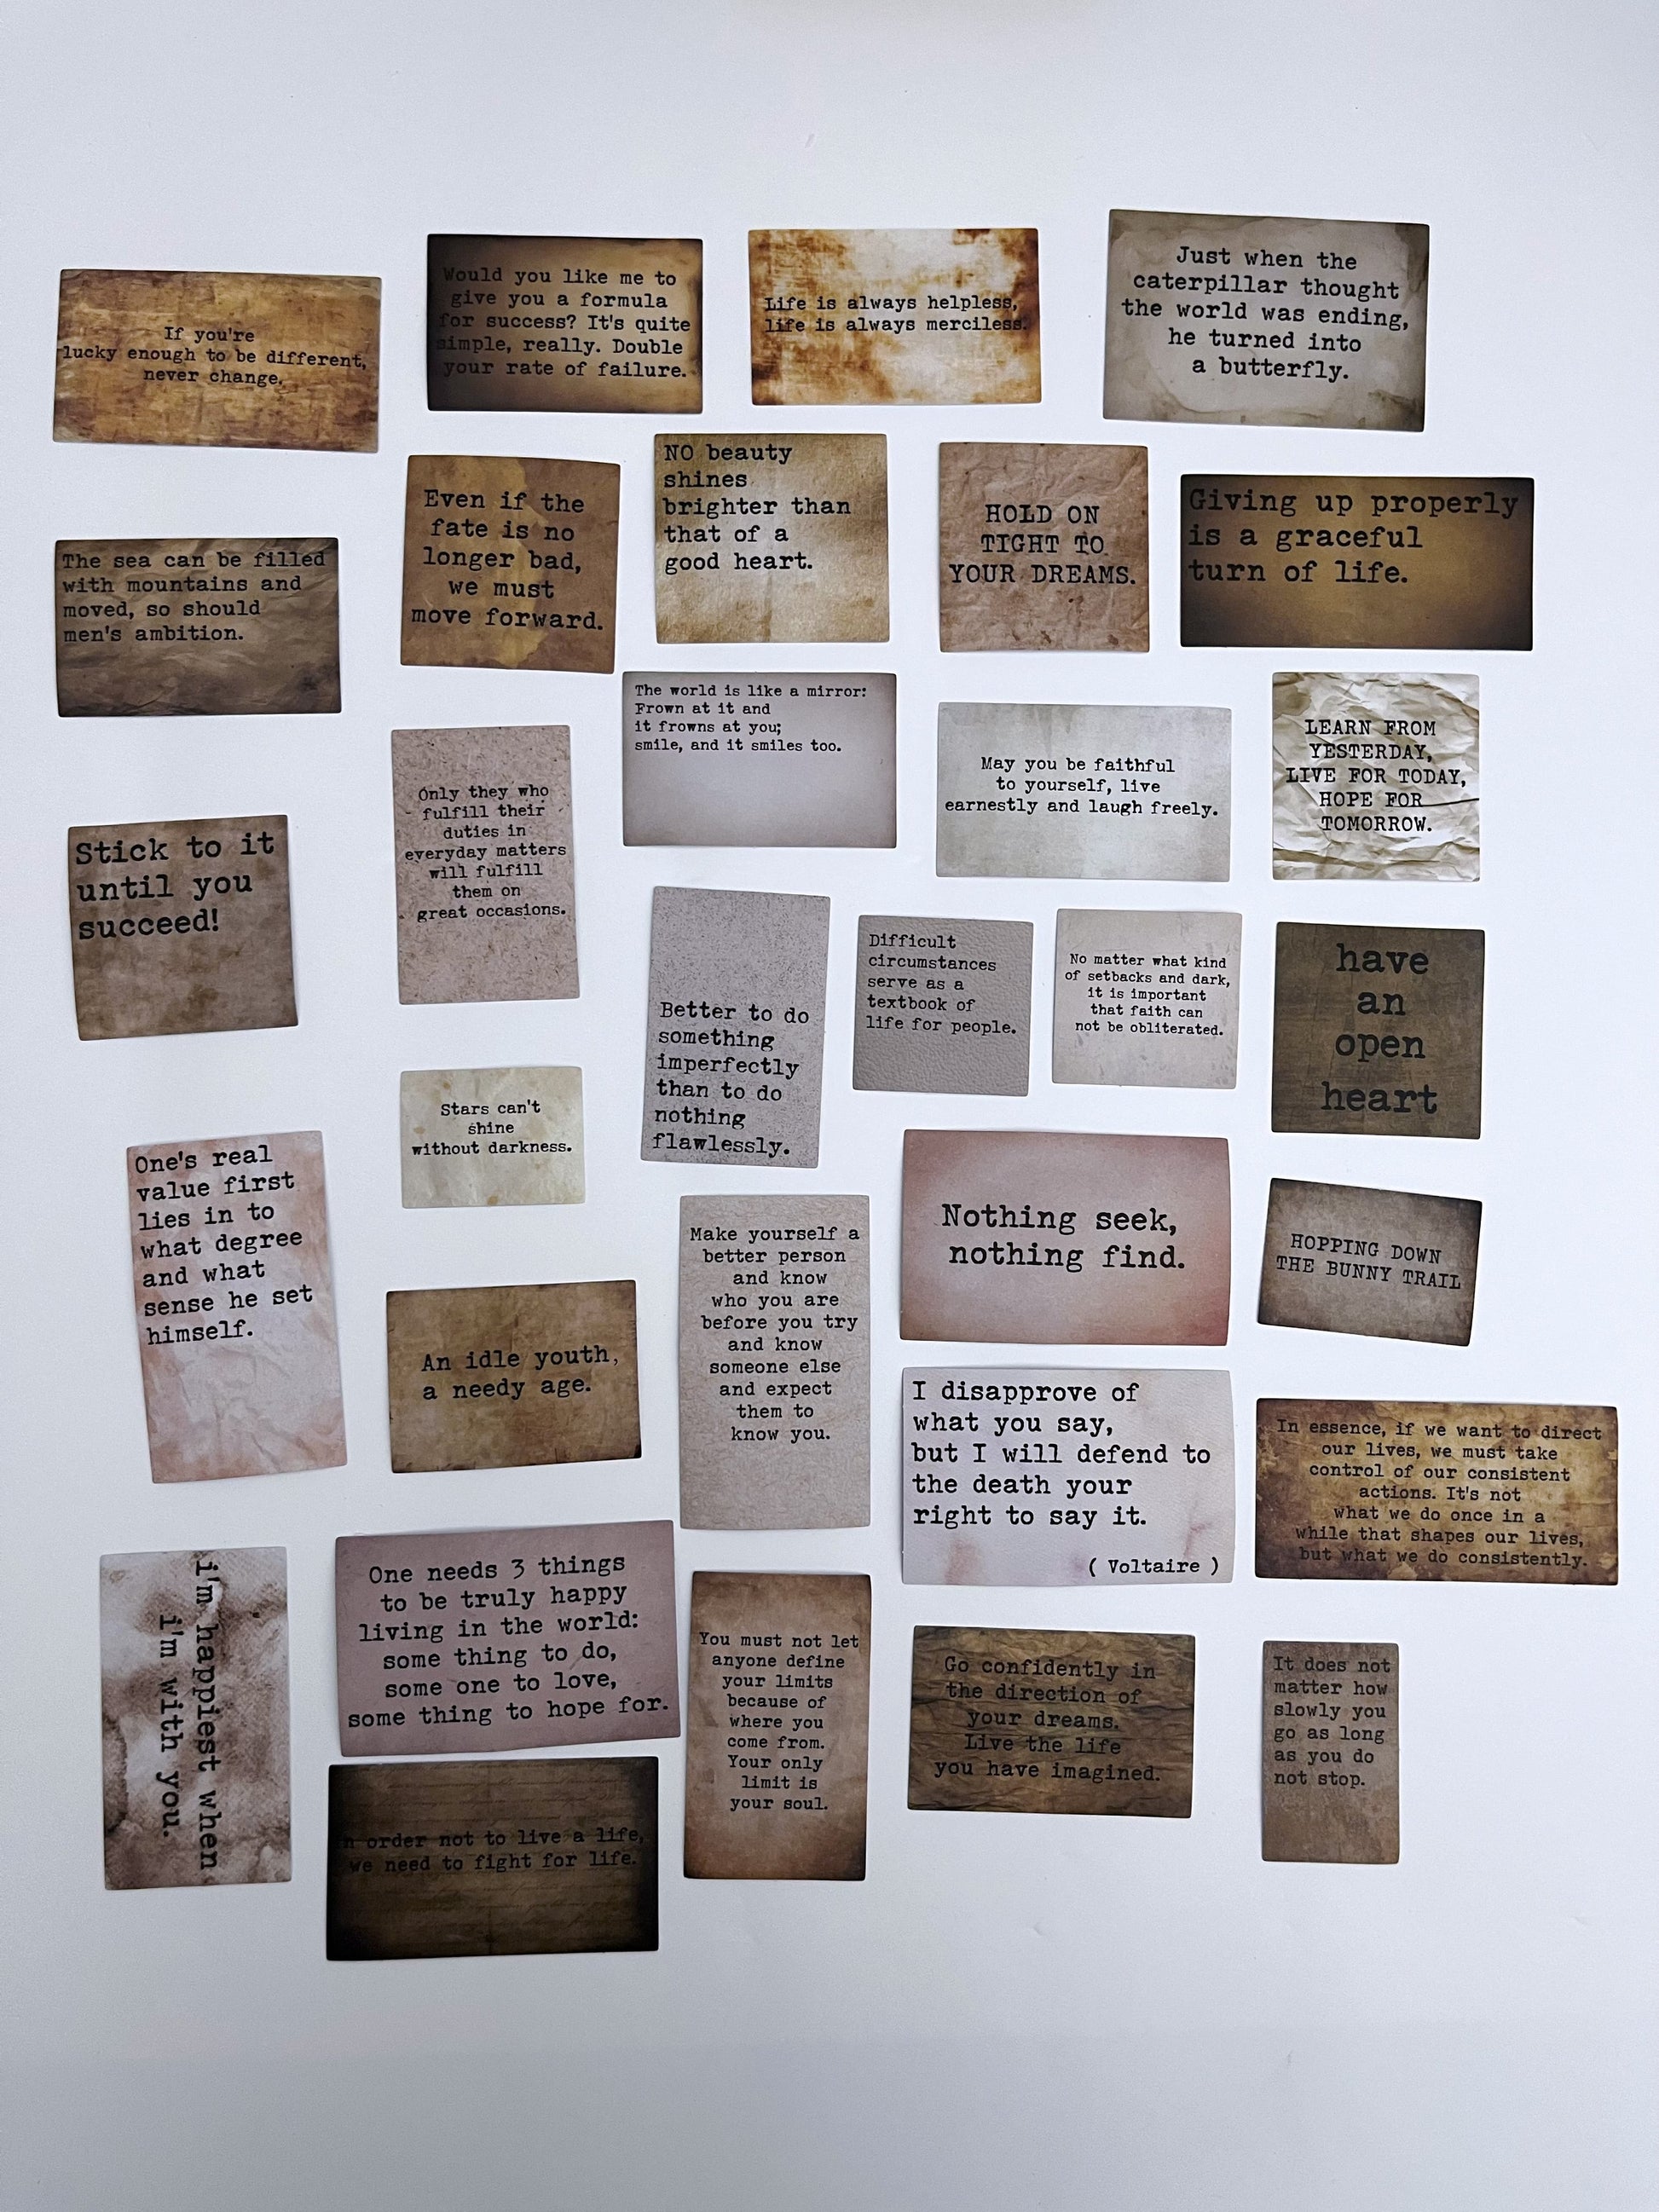 If you're
lucky enough to be different,
never change.
Would you like me to
give you a formula
for success? It's quite
simple, really. Double
your rate of failure.
Life is always helpless,
life is always merciless.
Just when the
caterpillar thought
the world was ending,
he turned into
a butterfly.
The sea can be filled
with mountains and
moved, so should
men's ambition.
Even if the
fate is no
longer bad,
we must
move forward.
NO beauty
shines
brighter than
that of a
good heart.
HOLD ON
TIGHT TO
YOUR DREAMS.
Giving up properly
is a graceful
turn of life.
Stick to it
until you
succeed!
Only they who
fulfill their
duties in
everyday matters
will fulfill
them on
great occasions.
The world is like a mirror:
Frown at it and
it frowns at you;
smile, and it smiles too.
May you be faithful
to yourself, live
earnestly and laugh freely.
LEARN FROM
YESTERDAY,
LIVE FOR TODAY,
HOPE FOR
TOMORROW.
Better to do
something
imperfectly
than to do
nothing
flawlessly.
Difficult
circumstances
serve as a
textbook of
life for people.
No matter what kind
of setbacks and dark,
it is important
that faith can
not be obliterated.
have
an
open
heart
One's real
value first
lies in to
what degree
and what
sense he set
himself.
Stars can't
shine
without darkness.
An idle youth,
a needy age.
Make yourself a
better person
and know
who you are
before you try
and know
someone else
and expect
them to
know you.
Nothing seek,
nothing find.
HOPPING DOWN
THE BUNNY TRAIL
I disapprove of
what you say,
but I will defend to
the death your
right to say it.
( Voltaire )
In essence, if we want to direct
our lives, we must take
control of our consistent
actions. It's not
what we do once in a
while that shapes our lives,
but what we do consistently.
i'm happiest when
i'm with you.
One needs 3 things
to be truly happy
living in the world:
some thing to do,
some one to love,
some thing to hope for.
n order not to live a life,
we need to fight for life.
You must not let
anyone define
your limits
because of
where you
come from.
Your only
limit is
your soul.
Go confidently in
the direction of
your dreams.
Live the life
you have imagined.
It does not
matter how
slowly you
go as long
as you do
not stop.